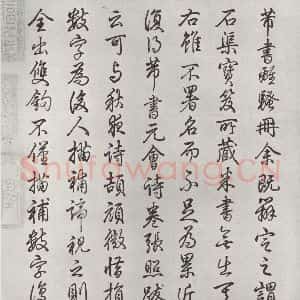 芾書離騷冊余既辨定之謂
石渠寶笈所藏米書無出其
右雖不署名而不足為累近
復得芾書元會詩卷張照跋
云可与秾艷詩頡頏徴惜损
數字為後人描補諦視之則
全出雙鉤不僅描補數字後
Shufawang.CN